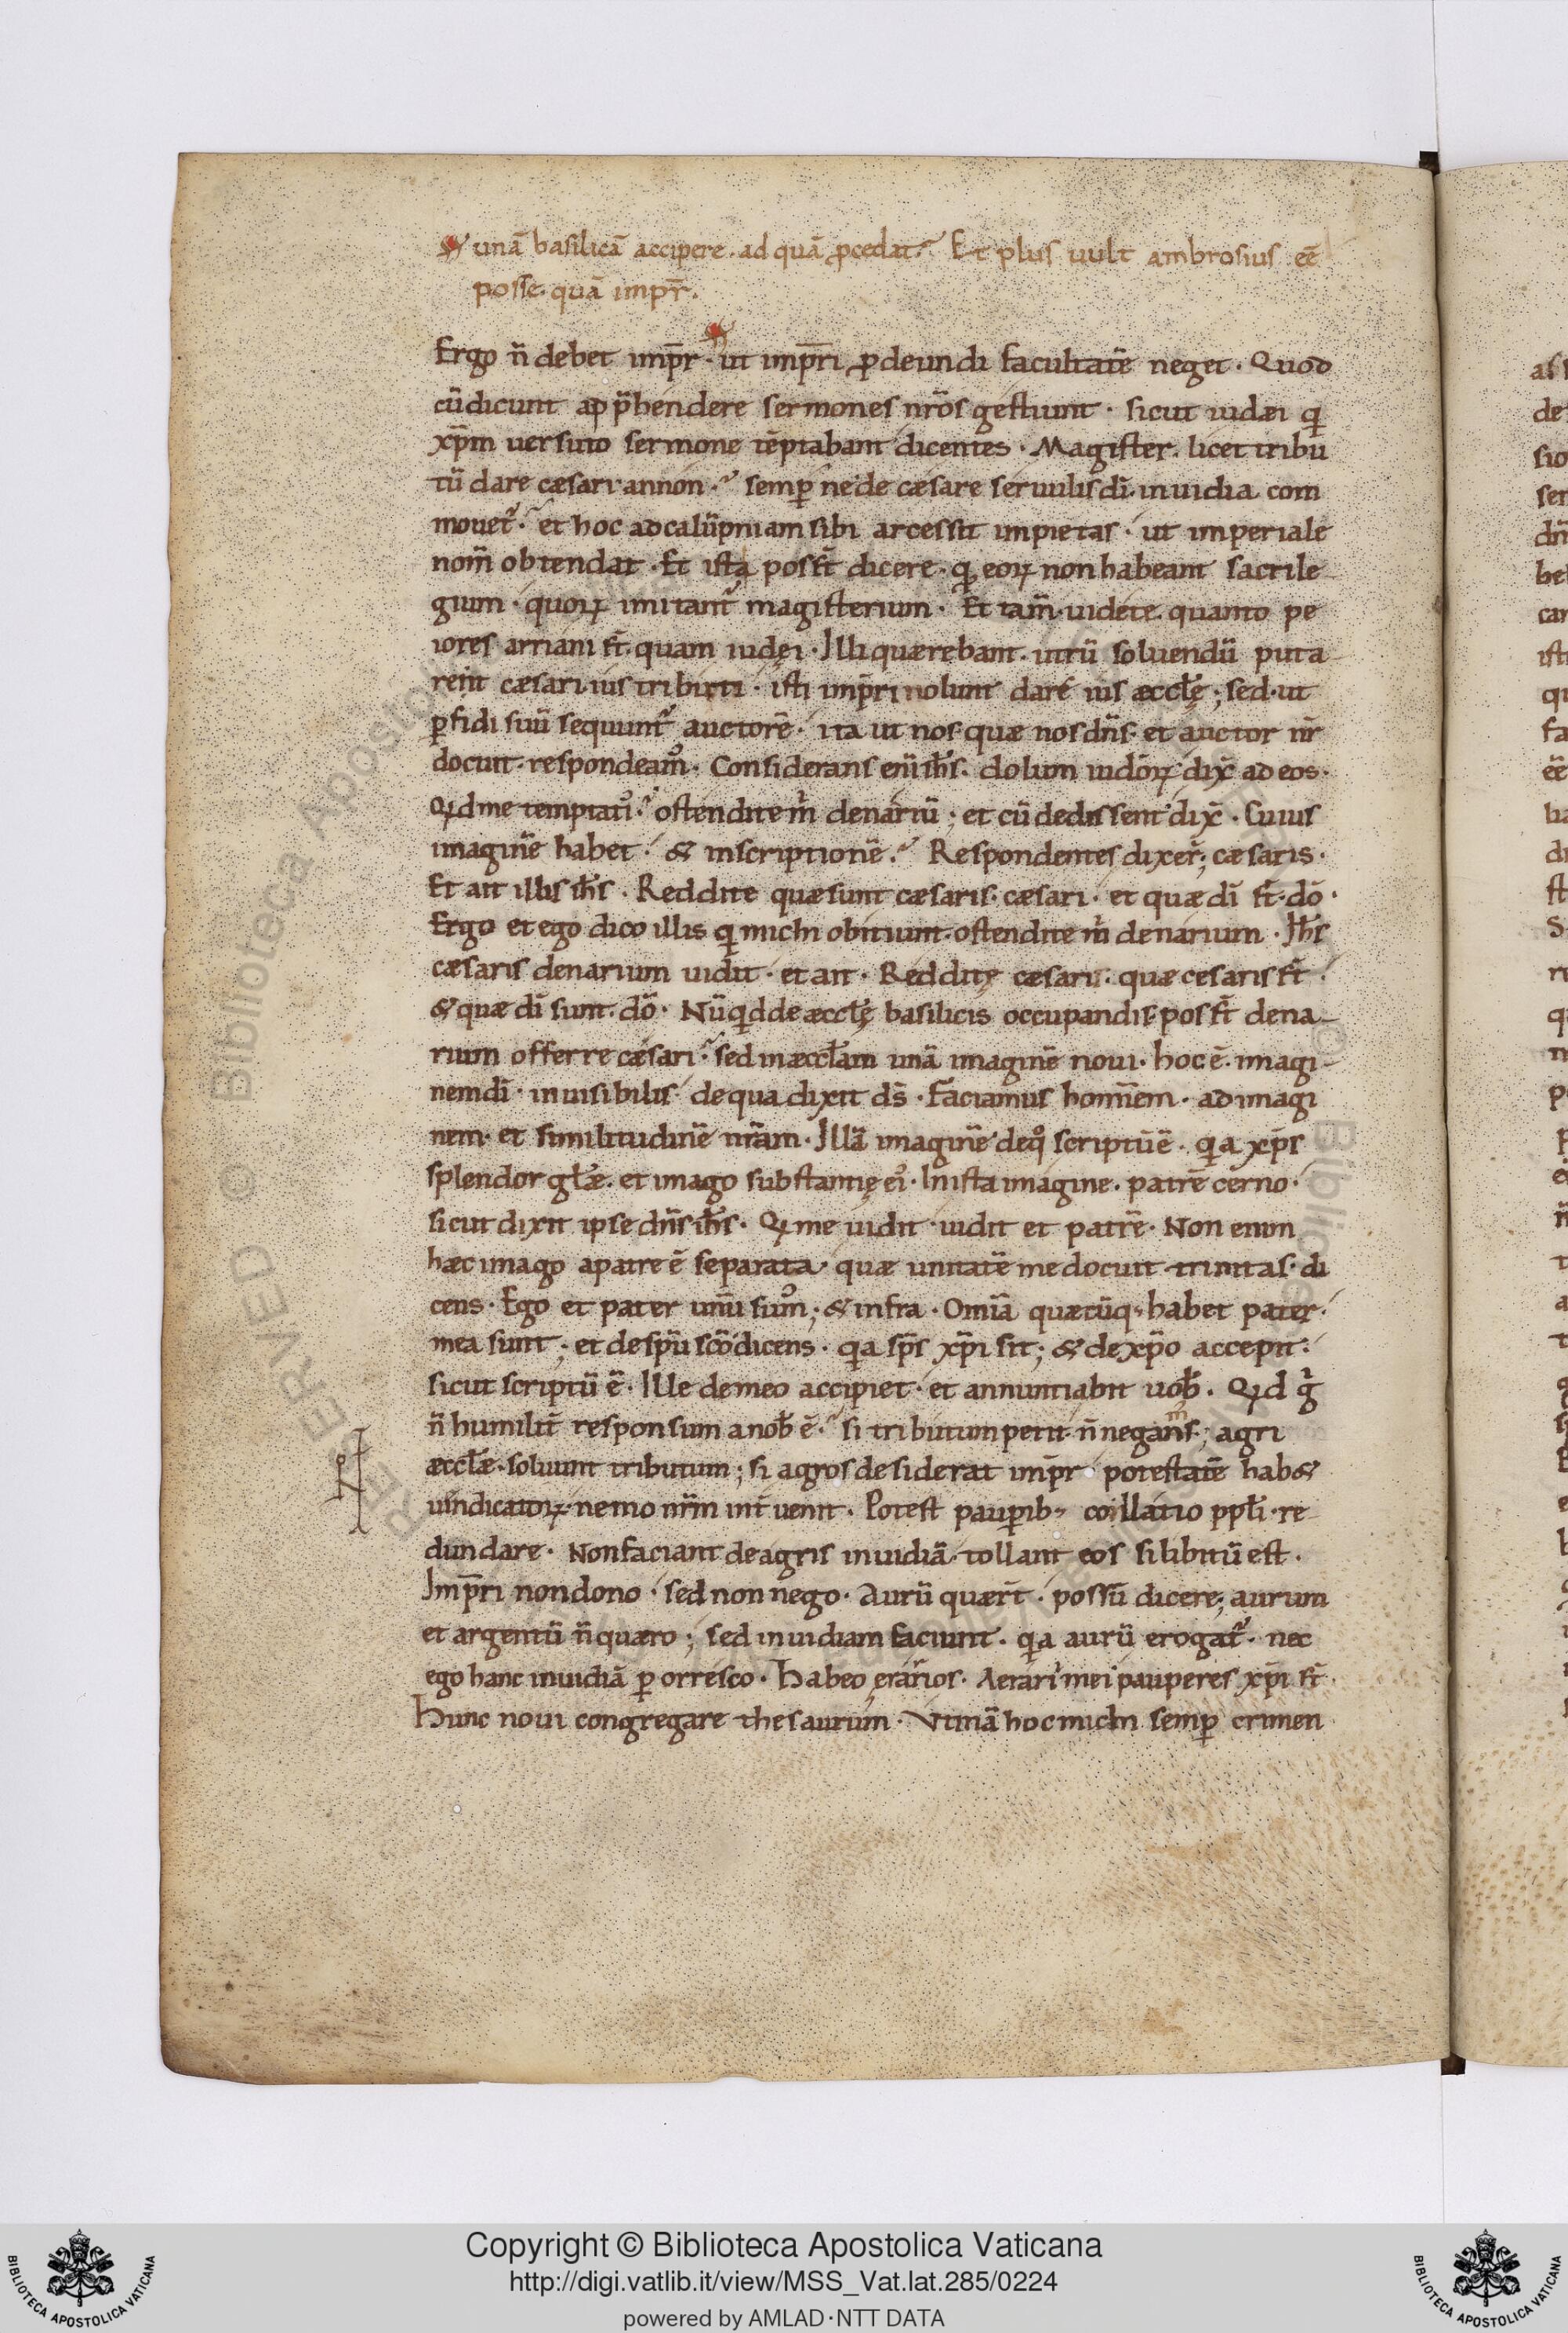 unā basilicā accipere. ad quā ꝓcedat? Et plus uult ambrosius eē
posse. quā impr̄.
Ergo n̄ debet imp̄r. ut imp̄ri ꝓdeundi facultatē neget. Quod
cū dicunt app̄hendere sermones nr̄os gestiunt. sicut iudæi q̇
xp̄m uersuto sermone tēptabant dicentes. Magister. licet tribu
tū dare cæsari annon? semꝑ ne de cæsare seruulis dī. inuidia com
mouet᷑? et hoc ad calūpniam sibi arcessit impietas. ut imperiale
nom̄ obtendat. Et ista poss̄t dicere. q̇ eoꝝ non habeant sacrile
gium. quoꝝ imitant᷑ magisterium. Et tam̄ uidete. quanto pe
iores arriani s̄t. quam iudęi. Illi quærebant. utrū soluendū puta
rent cæsari ius tributi. isti imp̄ri nolunt dare ius æccl̄ę; sed ut
ꝑfidi suū sequunt᷑ auctorē. ita ut nos quæ nos dn̄s. et auctor nr̄
docuit. respondeamꝰ. Considerans enī ih̄s. dolum iudēoꝝ dix̄ ad eos.
Qd me temptatıꝰ? ostendite ṁ denariū; et cū dedissent dix̄. Cuius
imaginē habet. & inscriptionē? Respondentes dixer̄; cæsaris.
Et ait illis ih̄s. Reddite quæ sunt cæsaris. cæsari. et quæ dī s̄t. dō.
Ergo et ego dico illis q̇ michi obitiunt. ostendite ṁ denarium. Ih̄s
cæsaris denarium uidit. et ait. Reddite cæsari. quæ cesaris s̄t.
& quæ dī sunt. dō. Nūq̇d de æccl̄ę basilicis occupandis poss̄t dena-
rium offerre cæsari? sed in æccl̄am unā imaginē noui. hoc ē. imagi-
nem dī. inuisibilis. de qua dixit ds̄. Faciamus homīem. ad imagi
nem. et similitudinē nr̄am. Illā imaginē de qͦ scriptū ē. q̇a xp̄s
splendor gl̄æ. et imago substantię eıꝰ. In ista imagine. patrē cerno.
sicut dixit ipse dn̄s ih̄s. Q̇ me uidit. uidit et patrē. Non enim
hæc imago a patre ē separata. quæ unitatē me docuit trinitas. di
cens. Ego et pater unū sumꝰ; & infra. Omīa quæcūq; habet pater.
mea sunt; et de sp̄u sc̄o dicens. q̇a sp̄s xp̄i sit; & de xp̄o accepit.
sicut scriptū ē. Ille de meo accipiet. et annuntiabit uob̄. Q̇d g̊
n̄ humilit̄ responsum a nob̄ ē? si tributum petit. n̄ negamꝰ; agri
æccl̄æ. soluunt tributum; si agros desiderat imp̄r potestatē hab&
uindicatoꝝ. nemo nr̄m int̄uenit. Potest pauꝑib; collatio ppl̄i. re
dundare. Non faciant de agris inuidiā. tollant eos si libitū est.
Imp̄ri non dono. sed non nego. Aurū quær̄t. possū dicere; aurum
et argentū n̄ quæro; sed inuidiam faciunt. q̇a aurū erogat᷑. nec
ego hanc inuidiā ꝑorresco. Habeo ęrarios. Aerarı̇ mei pauperes xp̄i s̄t.
Hunc noui congregare thesaurum. Vtinā hoc michi semꝑ crimen
Copyright © Biblioteca Apostolica Vaticana
http://digi.vatlib.it/view/MSS_Vat.lat.285/0224
powered by AMLAD·NTT DATA